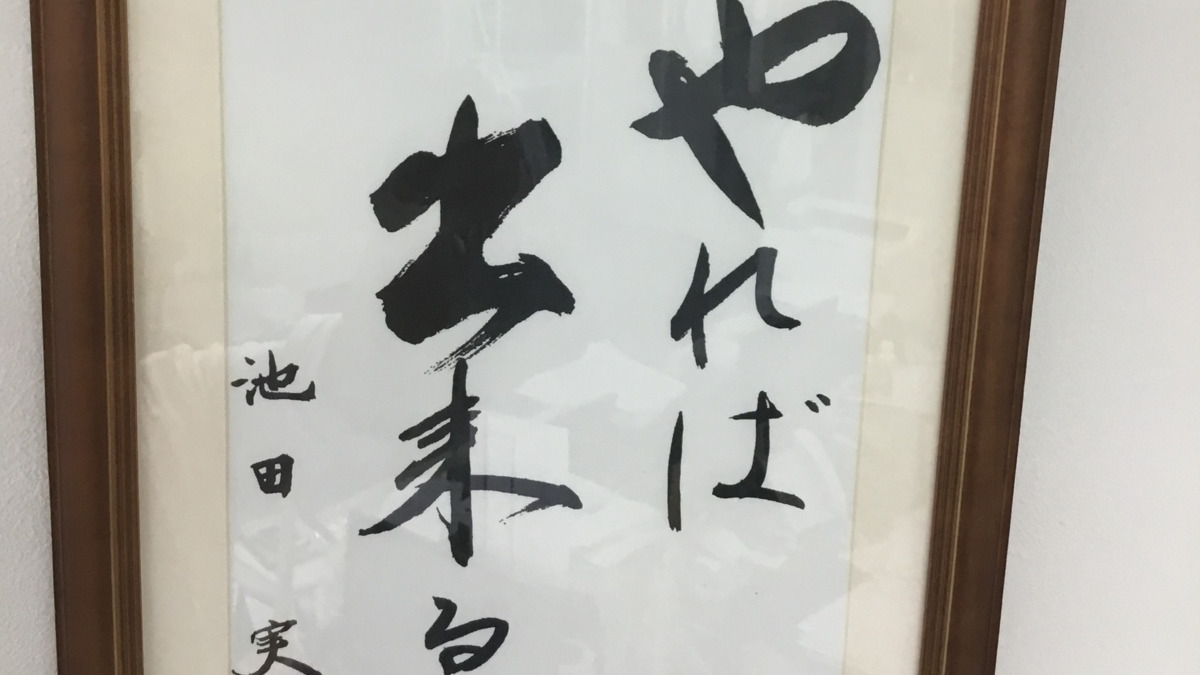 やれば
出来る
池田実